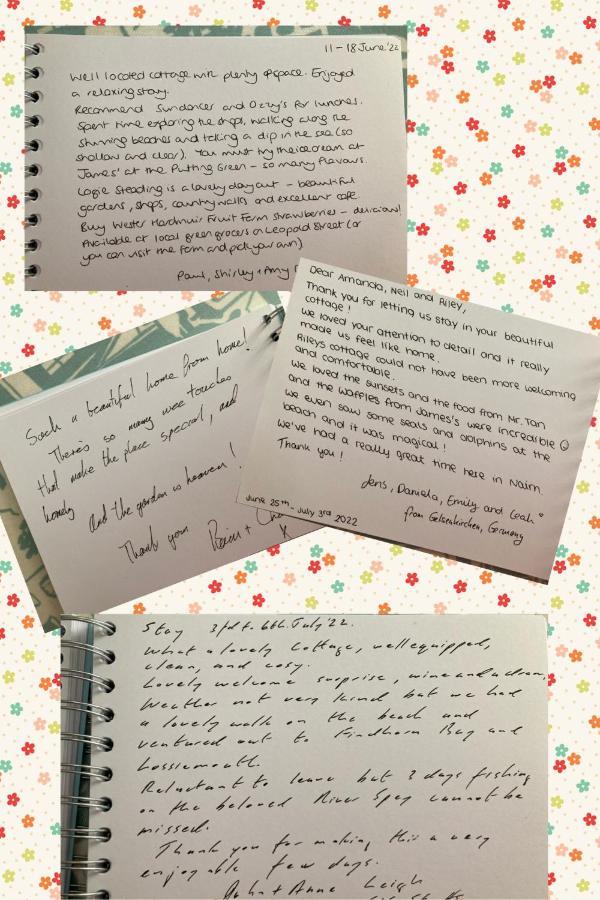 11 - 18 June '22
Well located cottage with plenty of space. Enjoyed
a relaxing stay.
Recommend Sundancer and Ozzy's for lunches.
Spent time exploring the shops, walking along the
stunning beaches and taking a dip in the sea (so
shallow and clear). You must try the icecream at
James' at the Putting Green - so many flavours.
Logie Steading is a lovely day out - beautiful
gardens, shops, country walks and excellent cafe.
Buy Wester Hardmuir Fruit Farm Strawberries - delicious!
Available at local green grocers on Leopold Street (or
you can visit the farm and pick your own)
Paul, Shirley + Amy
Dear Amanda, Neil and Riley,
Thank you for letting us stay in your beautiful
cottage!
We loved your attention to detail and it really
made us feel like home.
Rileys cottage could not have been more welcoming
and comfortable.
We loved the sunsets and the food from Mr. Tan
and the waffles from James's were incredible ☺
We even saw some seals and dolphins at the
beach and it was magical!
We've had a really great time here in Nairn.
Thank you!
Jens, Daniela, Emily and Leah
from Gelsenkirchen, Germany
June 25th - July 3rd 2022
Such a beautiful home from home!
There's so many wee touches
that make the place special, and
homely
and the garden is heaven!
Thank you
x
Stay 3rd to 6th July '22.
What a lovely cottage, well equipped,
clean, and cosy.
Lovely welcome surprise, wine and a dram,
Weather not very kind but we had
a lovely walk on the beach and
ventured out to Findhorn Bay and
Lossiemouth.
Reluctant to leave but 3 days fishing
on the beloved River Spey cannot be
missed.
Thank you for making this a very
enjoyable few days.
John + Anne Leigh